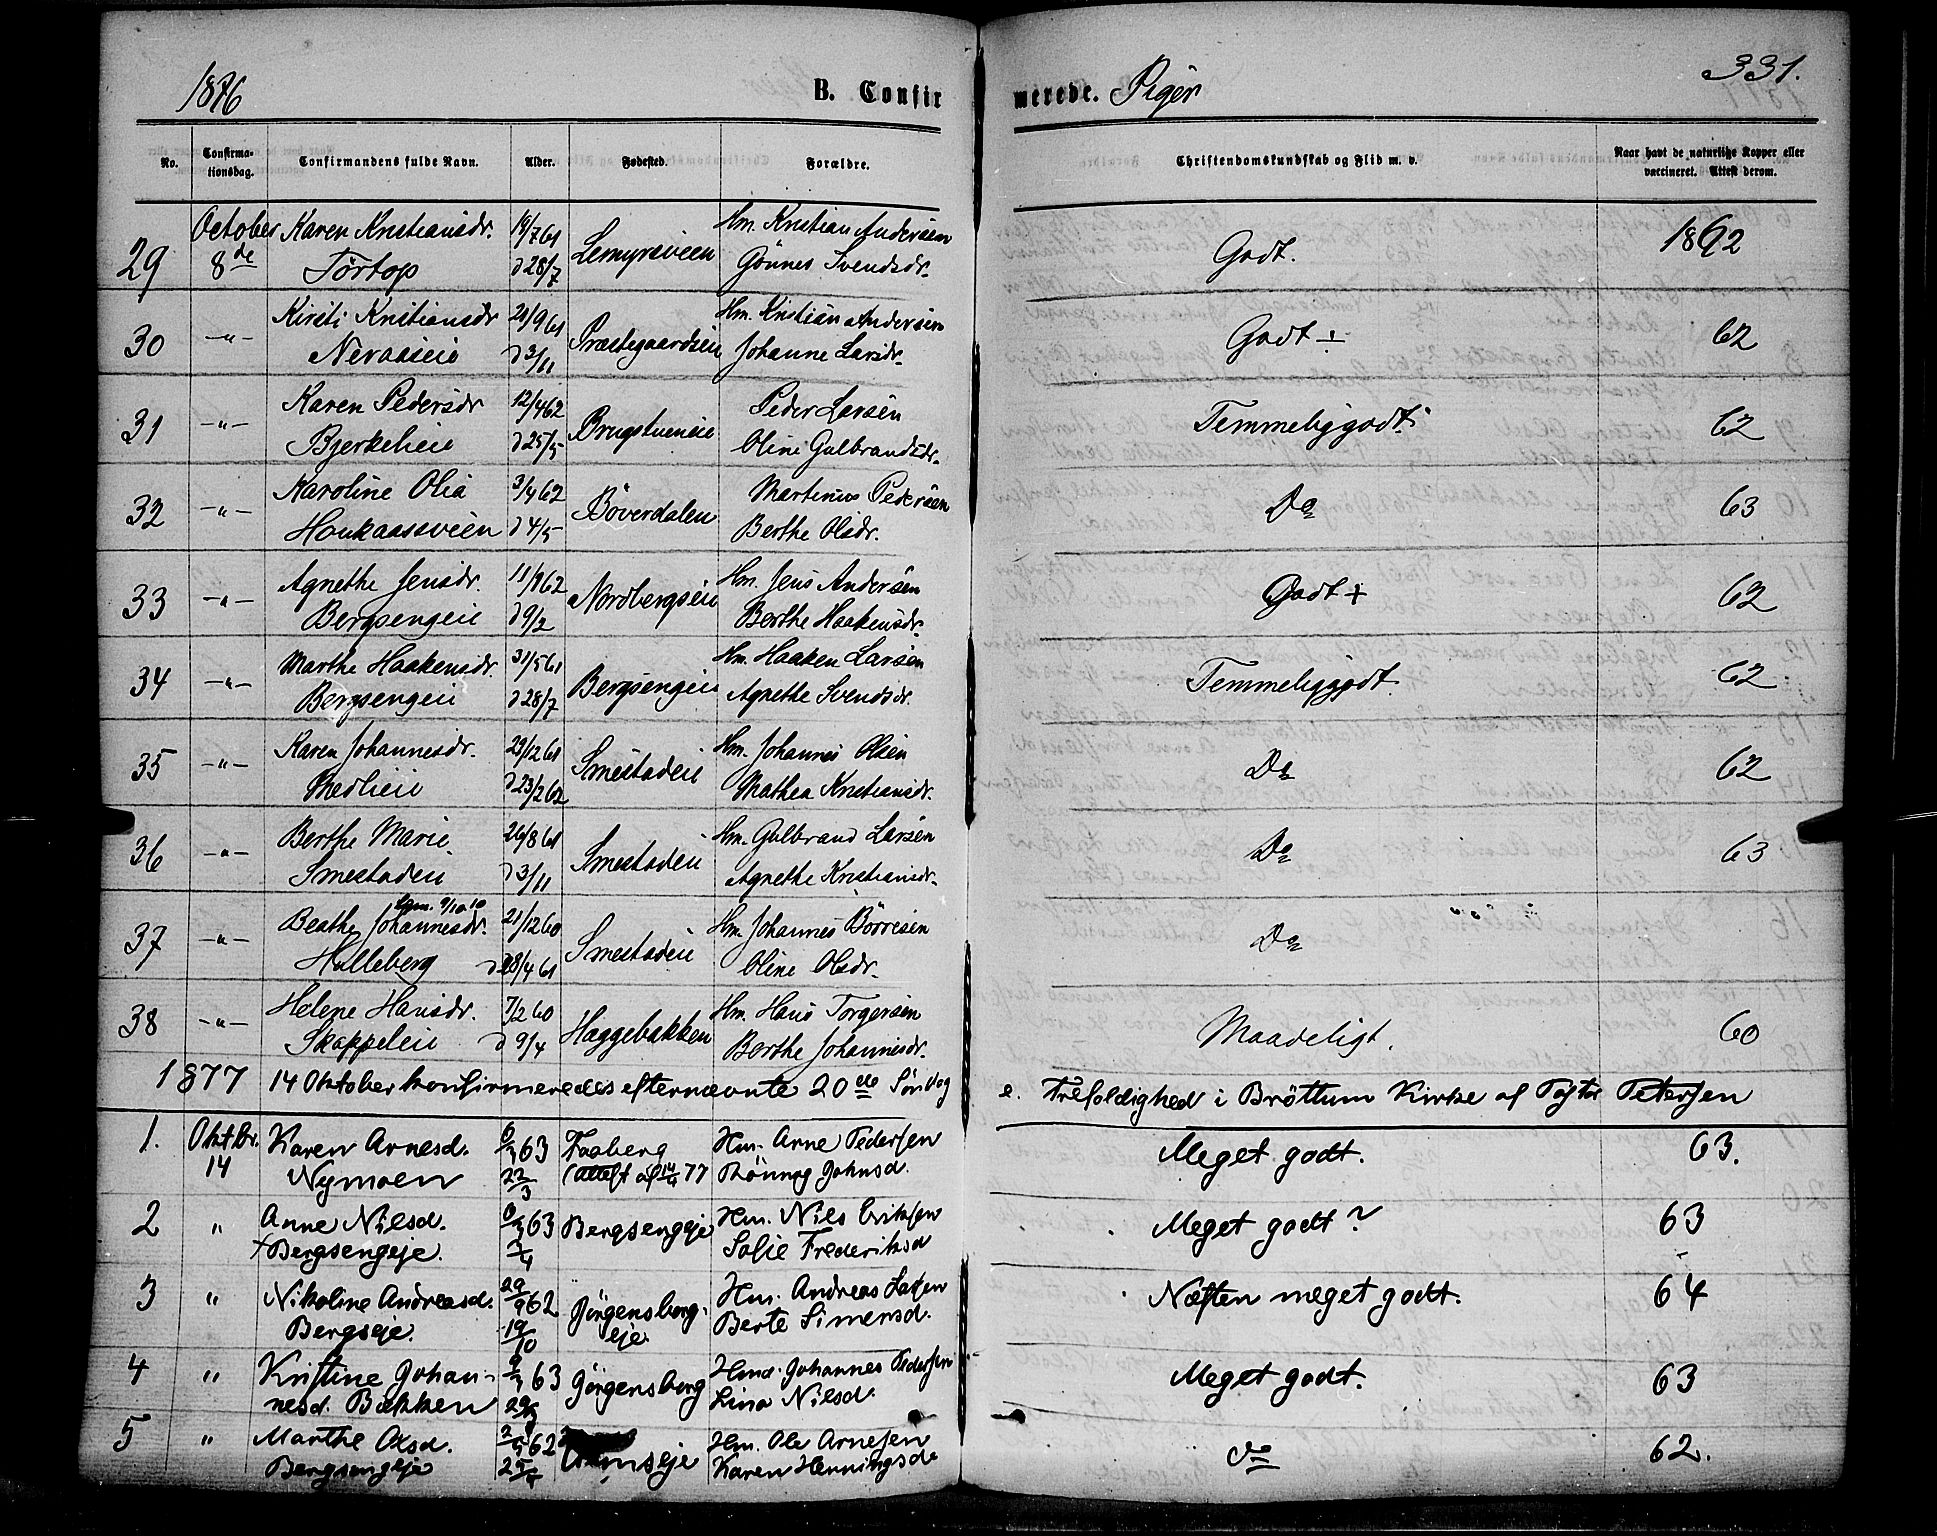 1876 B. Confirmerede. Piger 331.
No. Confirmationsdag. Confirmandens fulde Navn. Alder. Fødested. Forældre. Christendomskundskab og Flid m. v. Naar havt de naturlige Kopper eller vaccineret. Attest derom.
29 October 8de Karen Kristiansdr. 19/7 61 Lemyrsveen Hm. Kristian Andersen Godt. 1862
Tørtop d 28/7 Gønnes Svendsdr.
30 -"- Kirsti Kristiansdr 21/9 61 Præstegaardseie Hm. Kristian Andersen Godt ÷ 62
Neraaseie d 3/11 Johanne Larsdr.
31 -"- Karen Pedersdr 12/4 62 Brugstueneie Peder Larsen Temmeliggodt 62
Bjerkelieie d 25/5 Oline Gulbrandsdr.
32 -"- Karoline Olia 3/4 62 Böverdalen Martinus Pedersen Do 63
Houkaassveen d 4/5 Berthe Olsdr.
33 -"- Agnethe Jensdr. 11/1 62 Nordbergseie Hm. Jens Andersen Godt + 62
Bergsengeie d 9/2 Berthe Haakensdr.
34 -"- Marthe Haakensdr. 31/5 61 Bergsengeie Hm. Haaken Larsen Temmeliggodt. 62
Bergsengeie d 28/7 Agnethe Svendsdr.
35 -"- Karen Johannesdr. 29/12 61 Smestadeie Hm. Johannes Olsen Do 62
Medlieie d 23/2 62 Mathea Kristiansdr.
36 -"- Berthe Marie 26/8 61 Smestadeie Hm. Gulbrand Larsen Do 63
Smestadeie d 3/11 Agnethe Kristiansdr.
37 -"- Beathe Johannesdr. 21/12 60 Smestadeie Hm. Johannes Börresen Do
Hulleberg d 28/4 61 Oline Olsdr.
38 -"- Helene Hansdr. 7/2 60 Hæggebakken Hm. Hans Torgersen Maadeligt. 60
Skappeleie d 9/4 Berthe Johannesdr.
1877 14 Oktober konfirmeredes efternævnte 20de Søndag e. Trefoldighed i Brøttum Kirke af Petersen
1. Oktbr. 14 Karen Arnesd. 63 Faaberg Hm. Arne Pedersen Meget godt. 63.
Nymoen 22/3 (Attest af 14/9 77 Rönnog Johnsd.
2 " Anne Nilsd. 63 Bergsengeje Hm. Nils Eriksen Meget godt ? 63
Bergsengeje. Sofie Frederiksd
3 " Nikoline Andreasd. 29/9 62 Jörgensborg- Hm. Andreas Næsten meget godt. 64
Bergseje. 19/10 eje Berte Simensd.
4 " Kristine Johan- 63 Jörgensborg Hmd. Johannes Pedersen Meget godt. 63
nesd. Bakken Lina Nilsd.
5 " Marthe Olsd. 62 Hm. Ole Arnesen do 62.
Bergsengeje Karen Henningsd